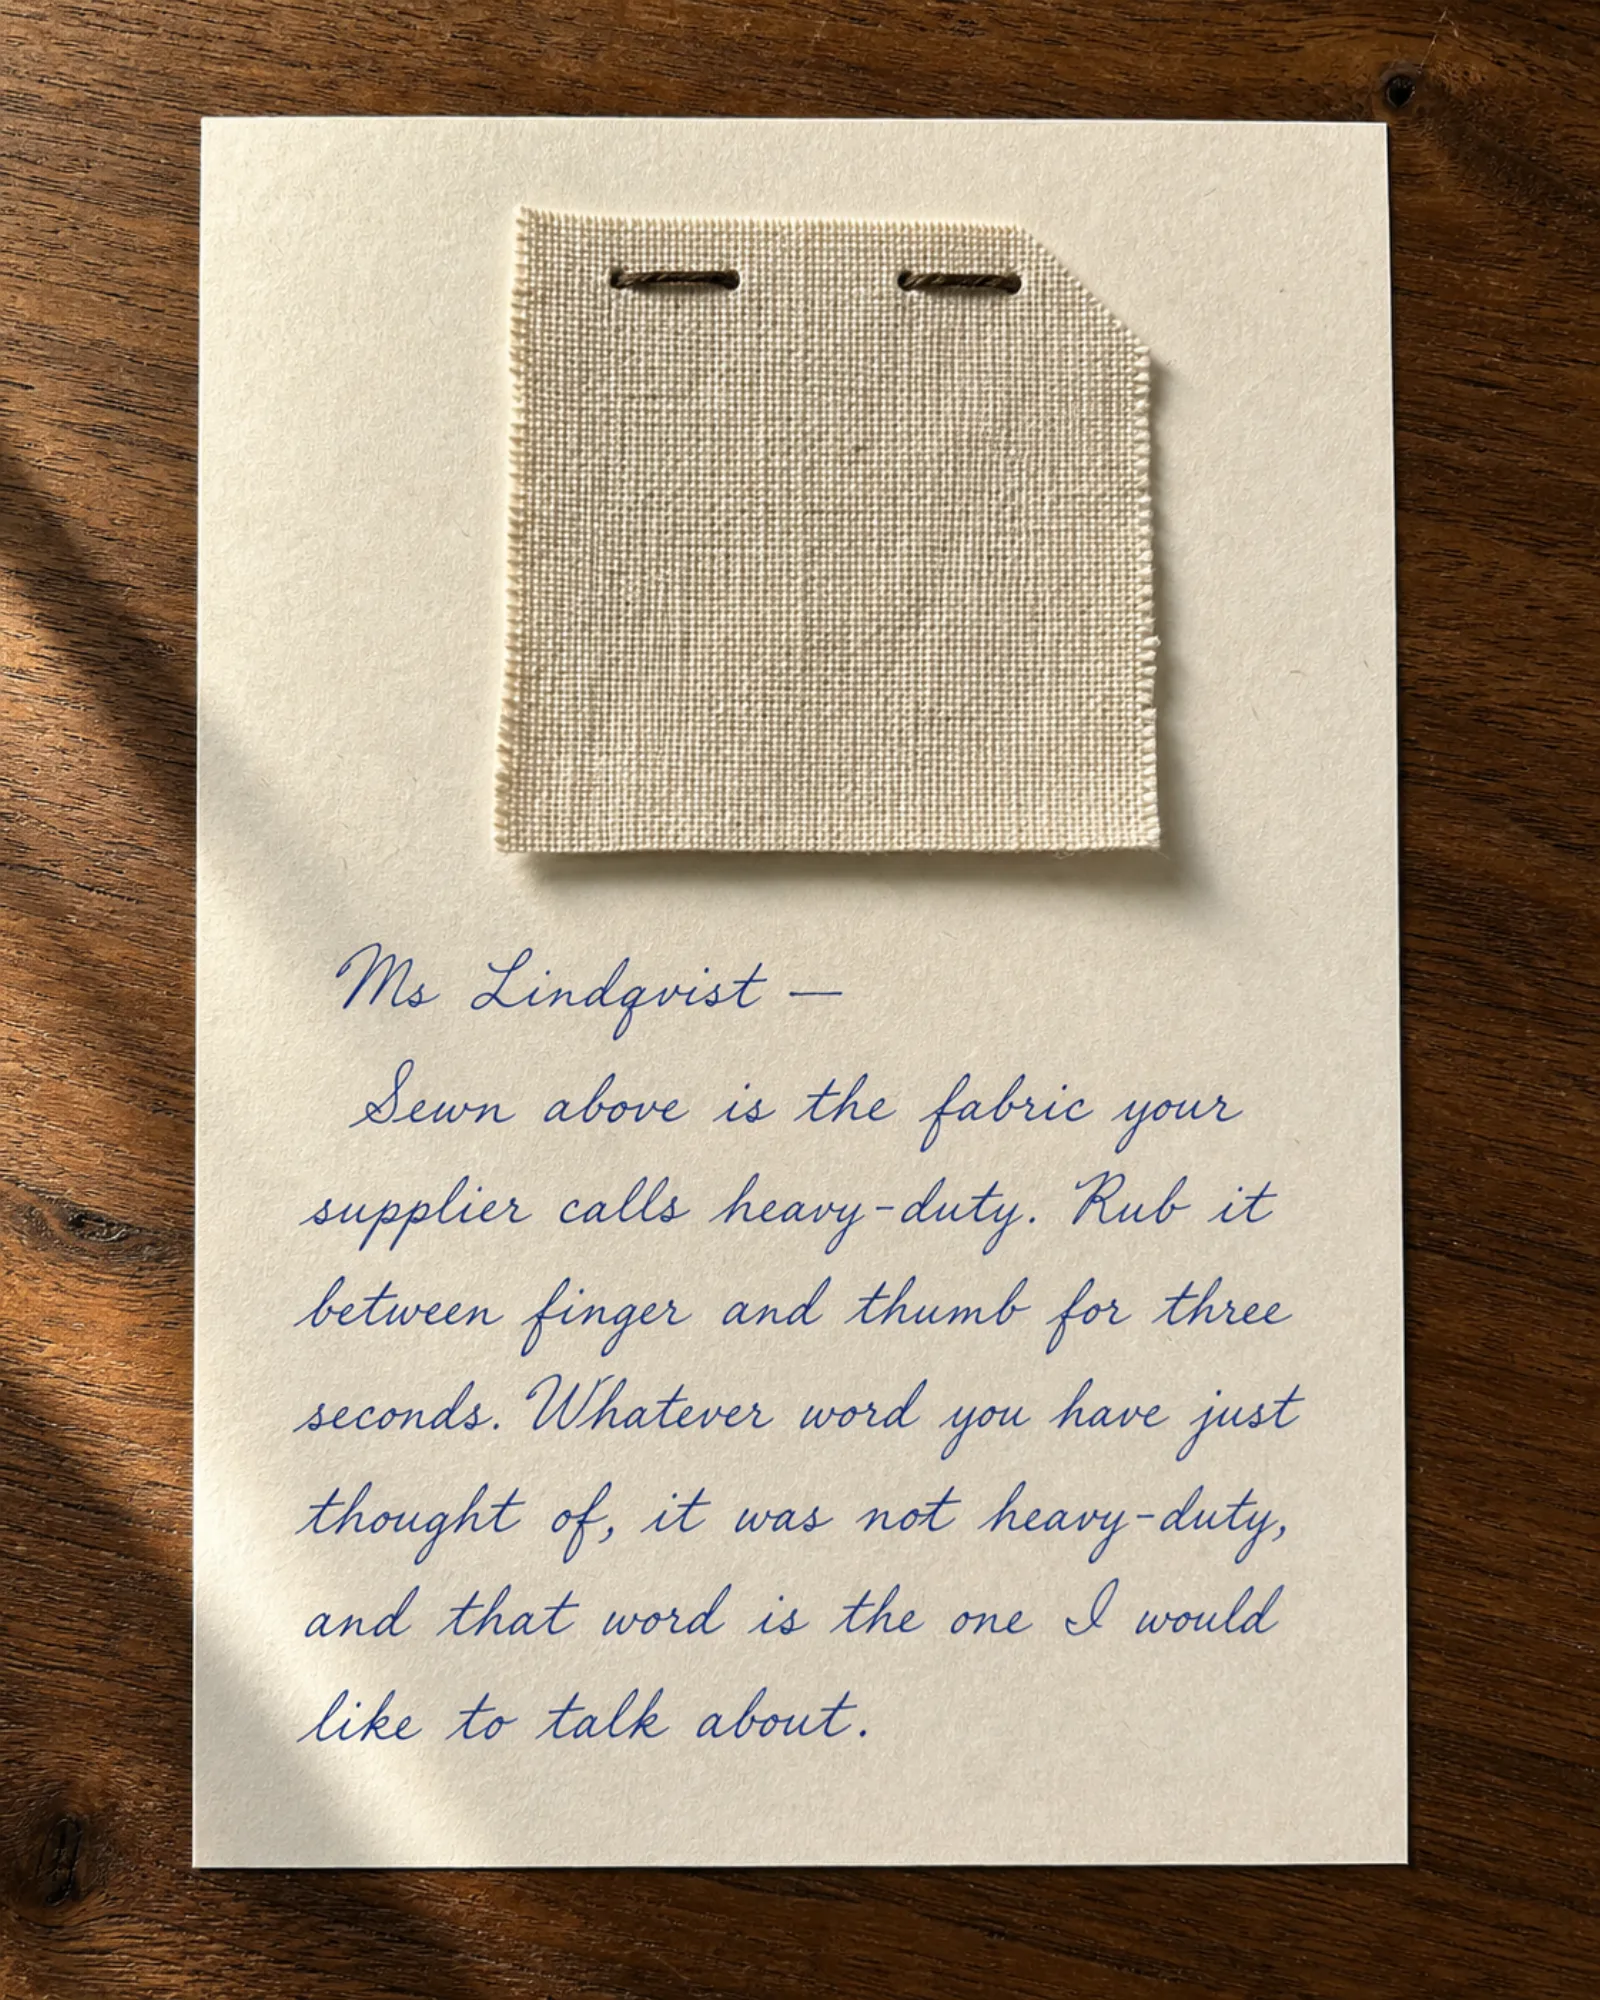 Ms Lindqvist —
Sewn above is the fabric your
supplier calls heavy-duty. Rub it
between finger and thumb for three
seconds. Whatever word you have just
thought of, it was not heavy-duty,
and that word is the one I would
like to talk about.